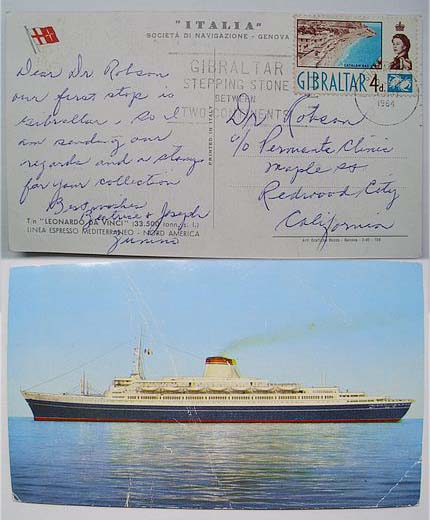 "ITALIA"
SOCIETÀ DI NAVIGAZIONE - GENOVA
GIBRALTAR
STEPPING STONE
BETWEEN
TWO CONTINENTS
CATALAN BAY
GIBRALTAR 4d
1964
Dear Dr Robson
our first stop is
Gibraltar. So I
am sending our
regards and a stamp
for your collection
Best wishes
Beatrice & Joseph
Zunino
PRINTED IN ITALY
Dr Robson
c/o Permanente Clinic
Maple St
Redwood City
California
T/n "LEONARDO DA VINCI" (33.500 tonn. s. l.)
LINEA ESPRESSO MEDITERRANEO - NORD AMERICA